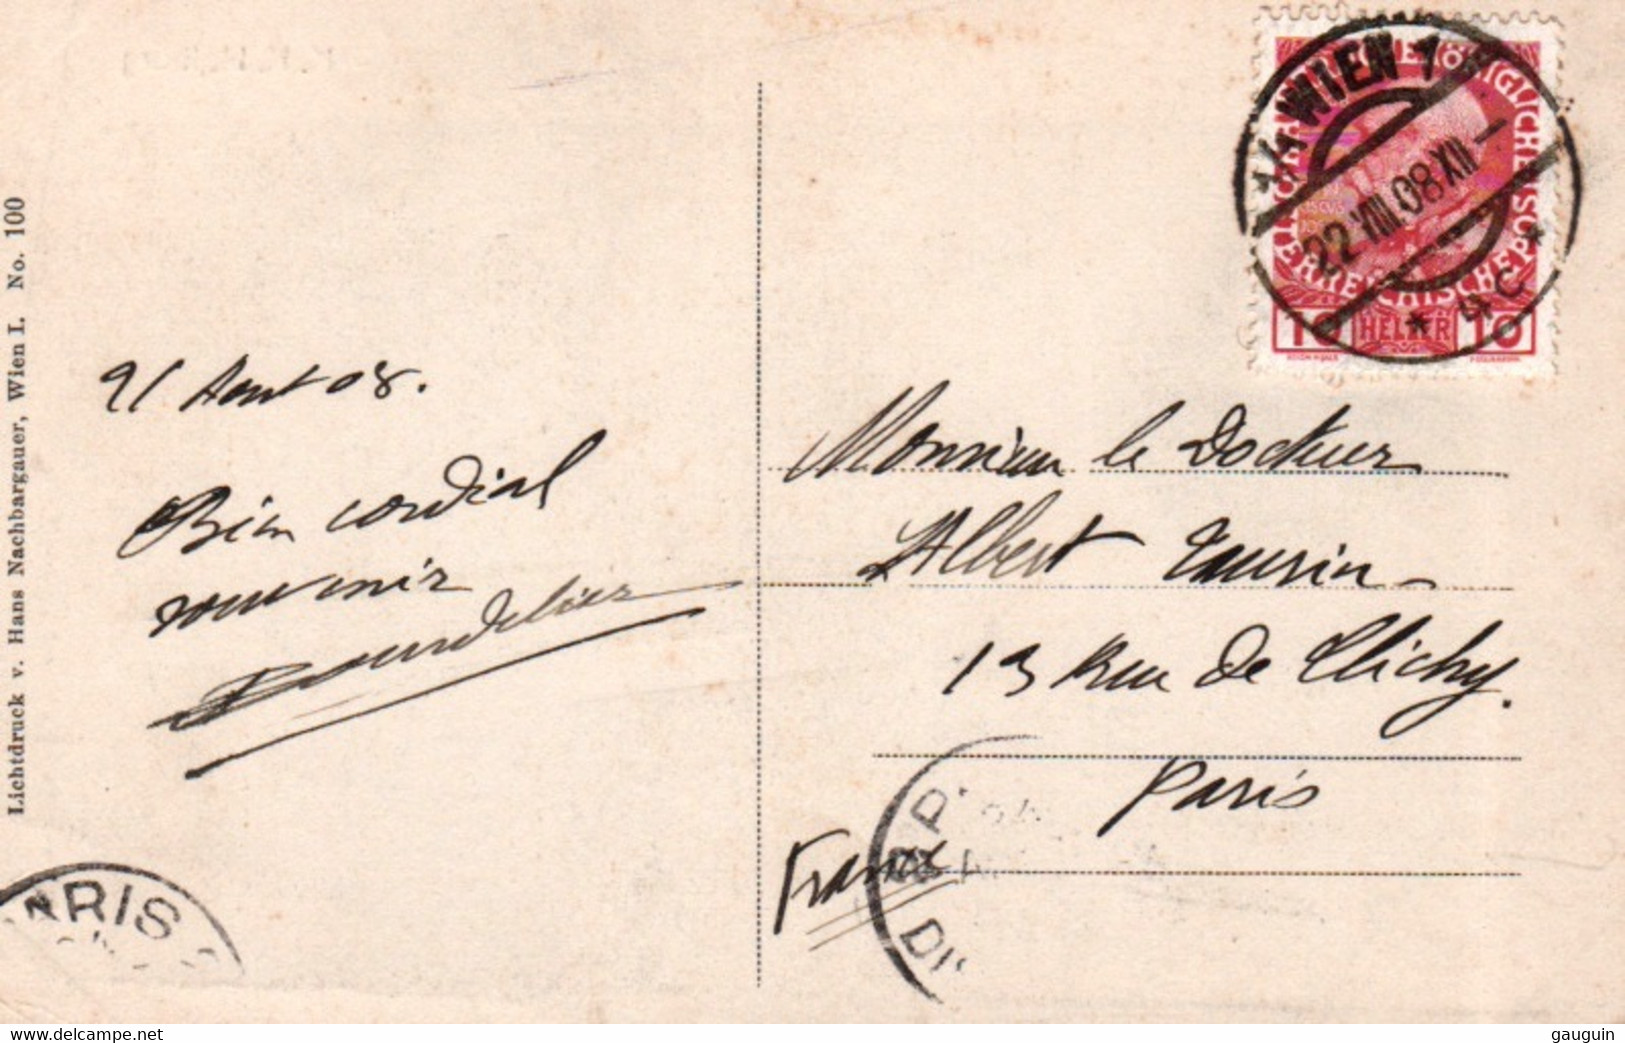 Lichtdruck v. Hans Nachbargauer, Wien I. No. 100
21 Aout 08.
Bien cordial
souvenir
Monsieur le Docteur
Albert Taurin
13 Rue de Clichy.
Paris
France
4/4 WIEN 1
22.VIII.08 XII-
* 4c *
KAISERLICHE KÖNIGLICHE
ÖSTERREICHISCHE POST
10 HELLER 10
PARIS
DI
gauguin